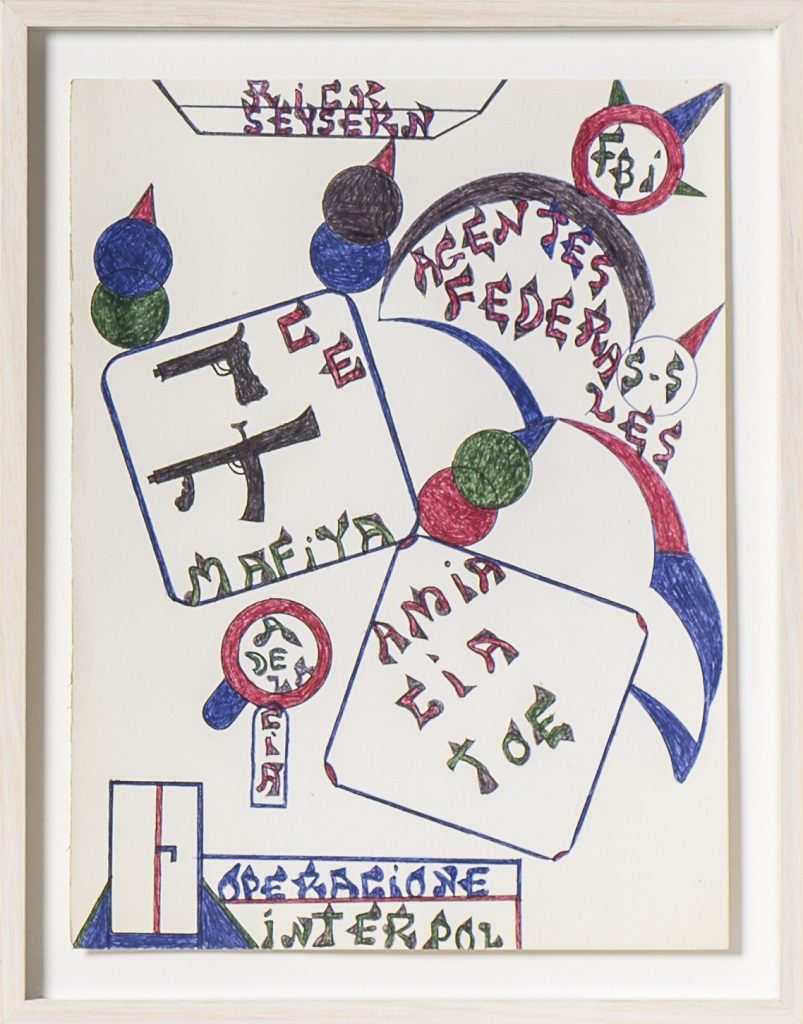 RiCK
SEYSERN
FBi
AGENTES
FEDERALES
S-S
CE
MAFiYA
A
DE
LA
CiA
AMiA
CiA
TOE
OPERACiONE
iNTERPOL